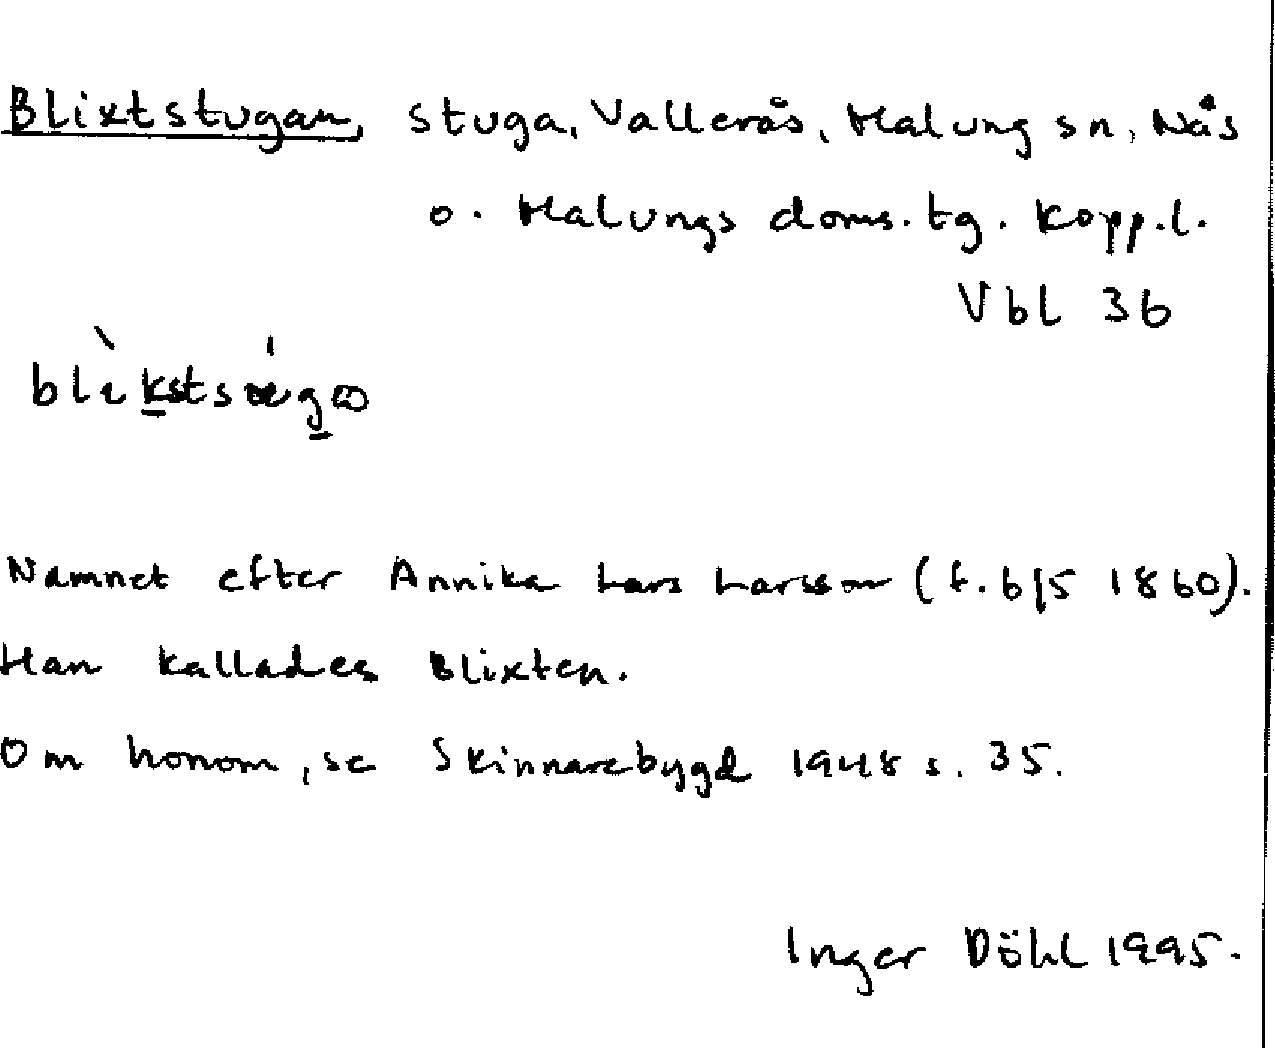 Blixtstugan, stuga, Vallerås, Malung sn, Nås
o. Malungs doms. tg. Kopp.l.
Vbl 36
Namnet efter Annika Lars Larsson (f. 6/5 1860).
Han kallades Blixten.
Om honom, se Skinnarebygd 1948 s. 35.
Inger Döhl 1995.